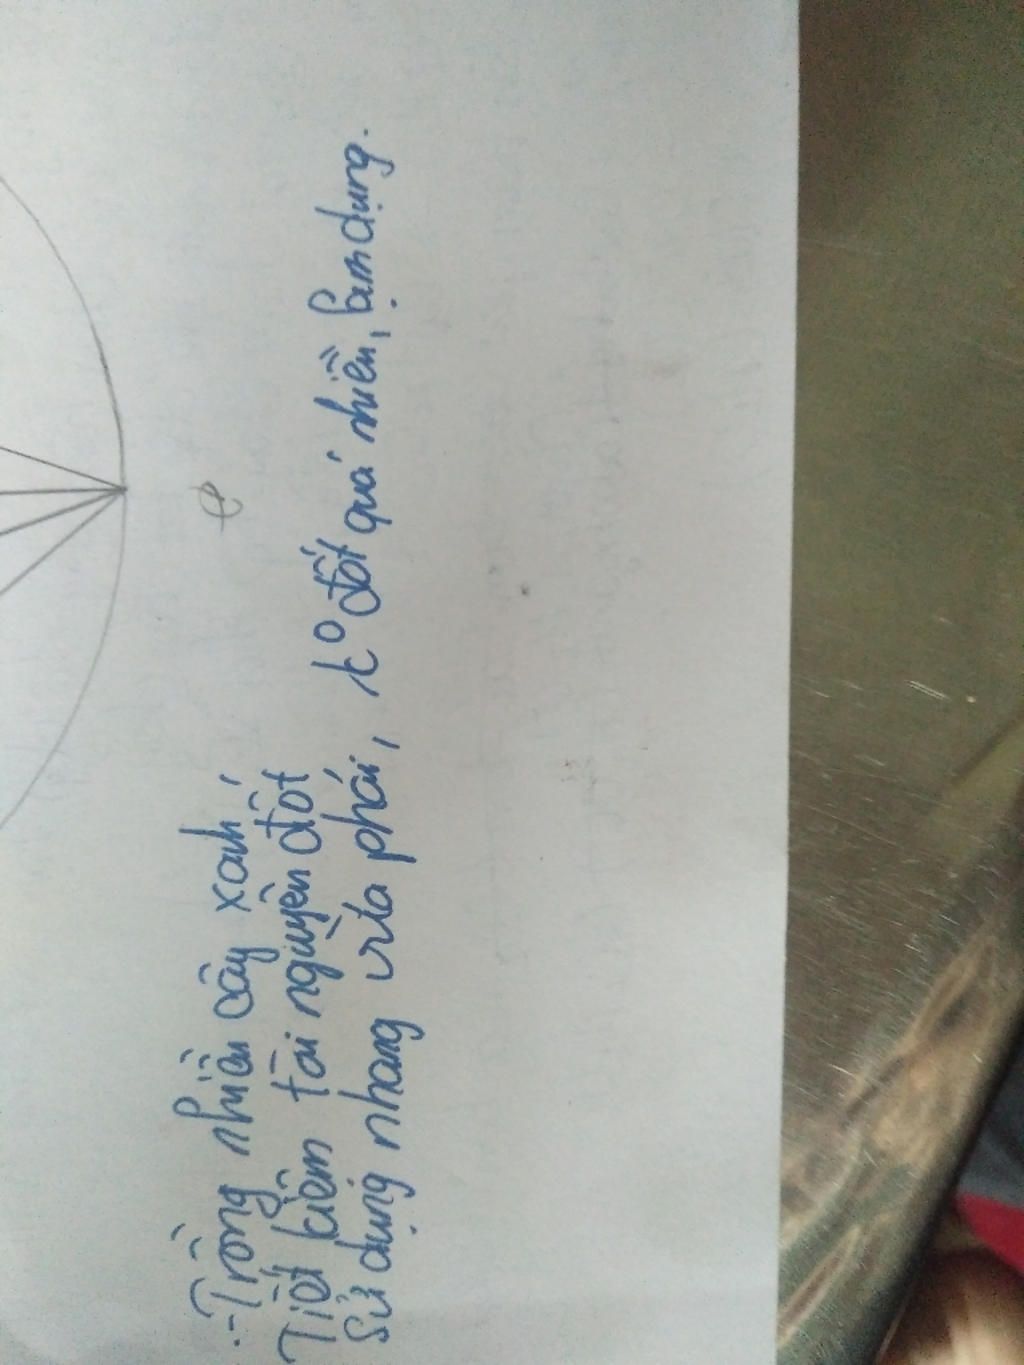 - Trồng nhiều cây xanh
Tiết kiệm tài nguyên đốt
Sử dụng nhang vừa phải, kº đốt quá nhiều, lạm dụng.